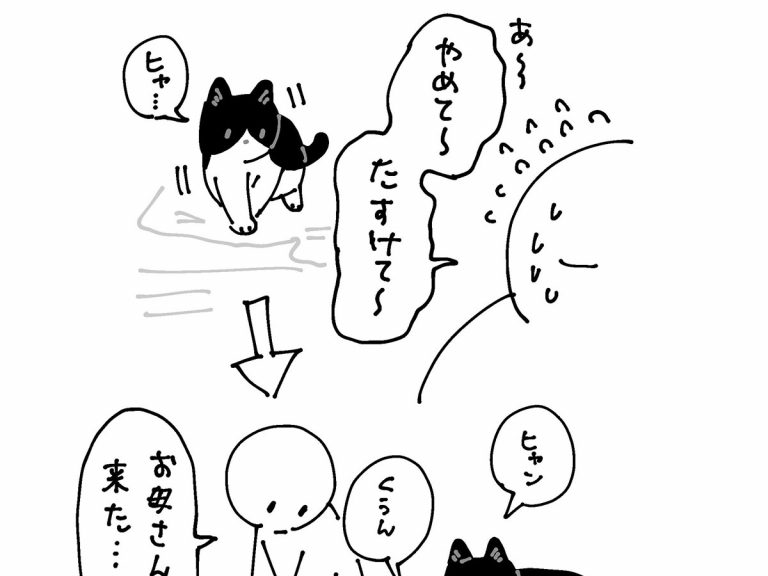 あ〜
やめて〜
たすけて〜
ヒャ…
ヒャン
くぅん
お母さん
来た…